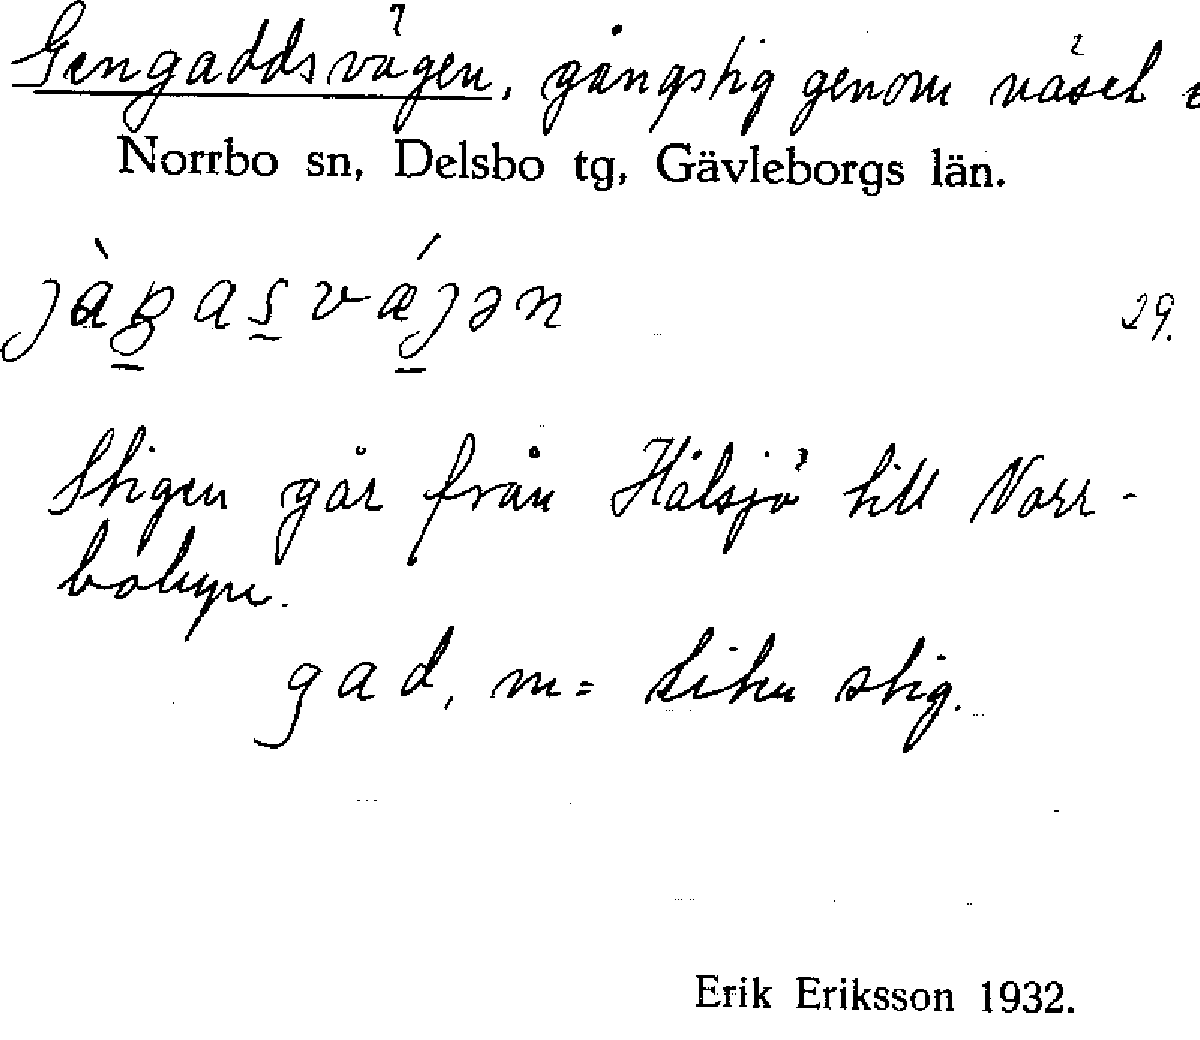 Gengaddsvägen, gångstig genom väsch i
Norrbo sn, Delsbo tg, Gävleborgs län.
29.
Stigen går från Hålsjö till Norr-
bobyn.
gad, m = liten stig.
Erik Eriksson 1932.